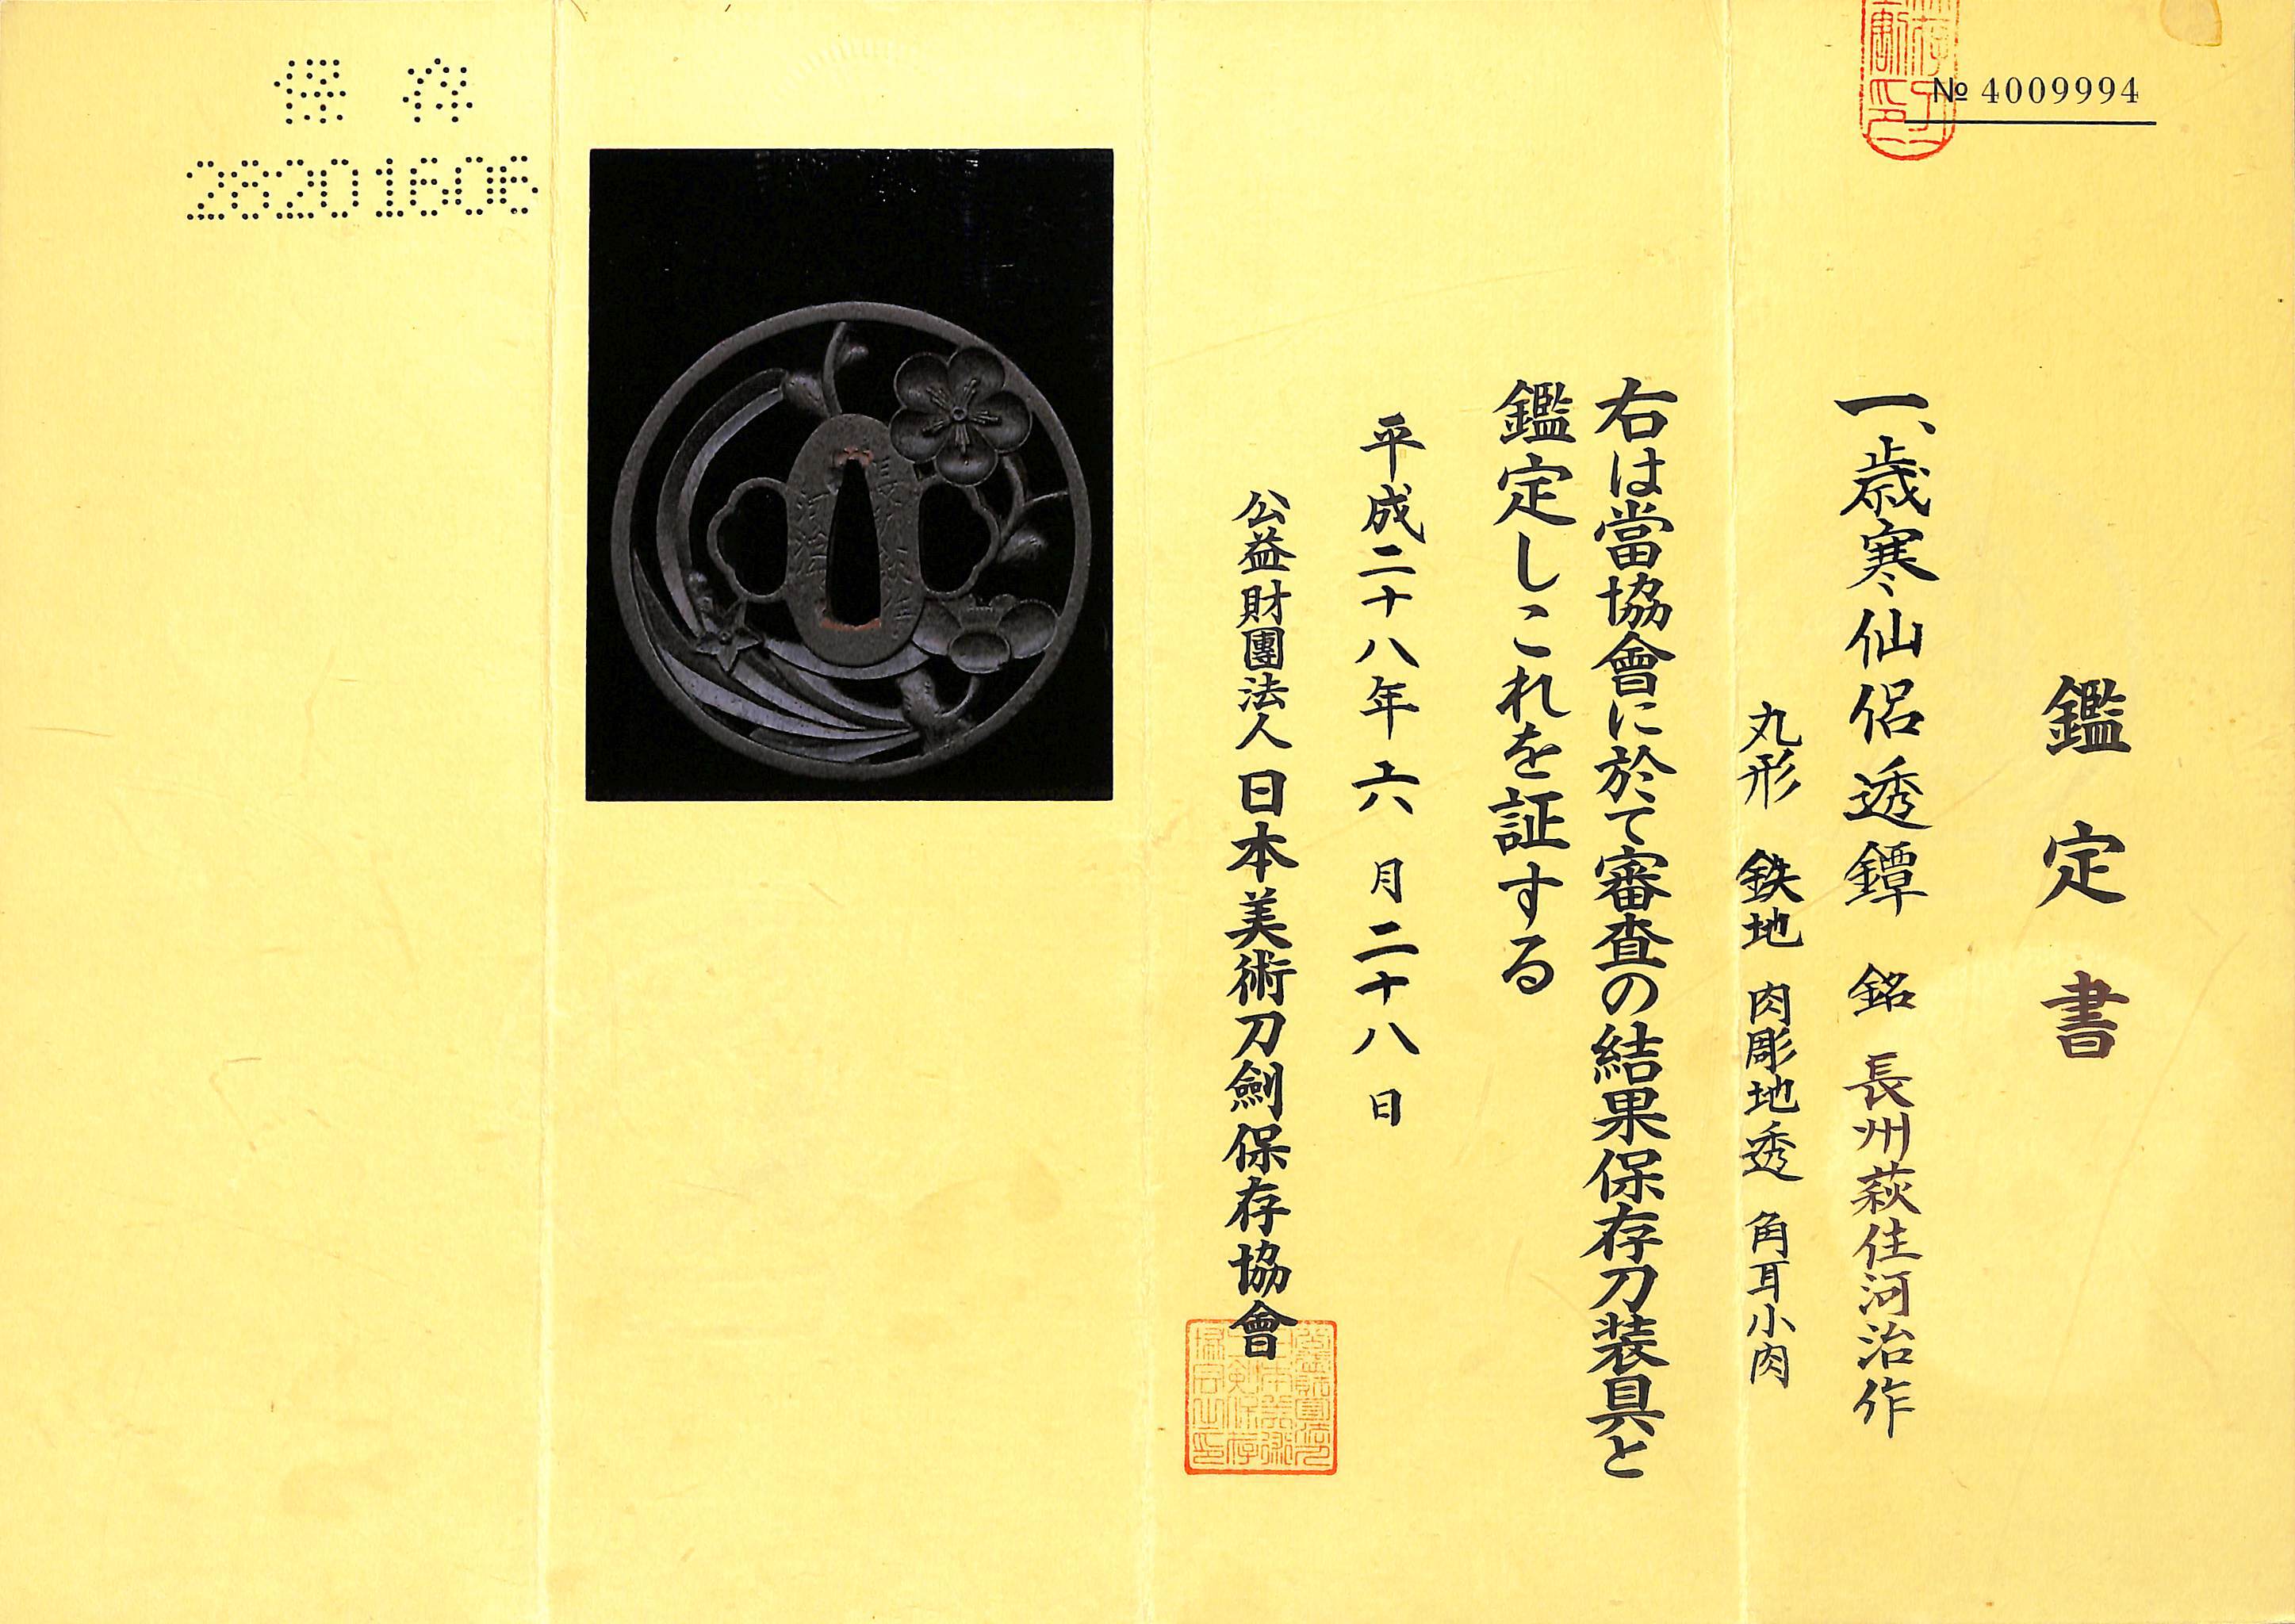 № 4009994
鑑定書
一、歳寒仙侶透鐔 銘 長州萩住河治作
丸形 鉄地 肉彫地透 角耳小肉
右は當協會に於て審査の結果保存刀装具と
鑑定しこれを証する
平成二十八年六月二十八日
公益財團法人日本美術刀劍保存協會
保存
28201606